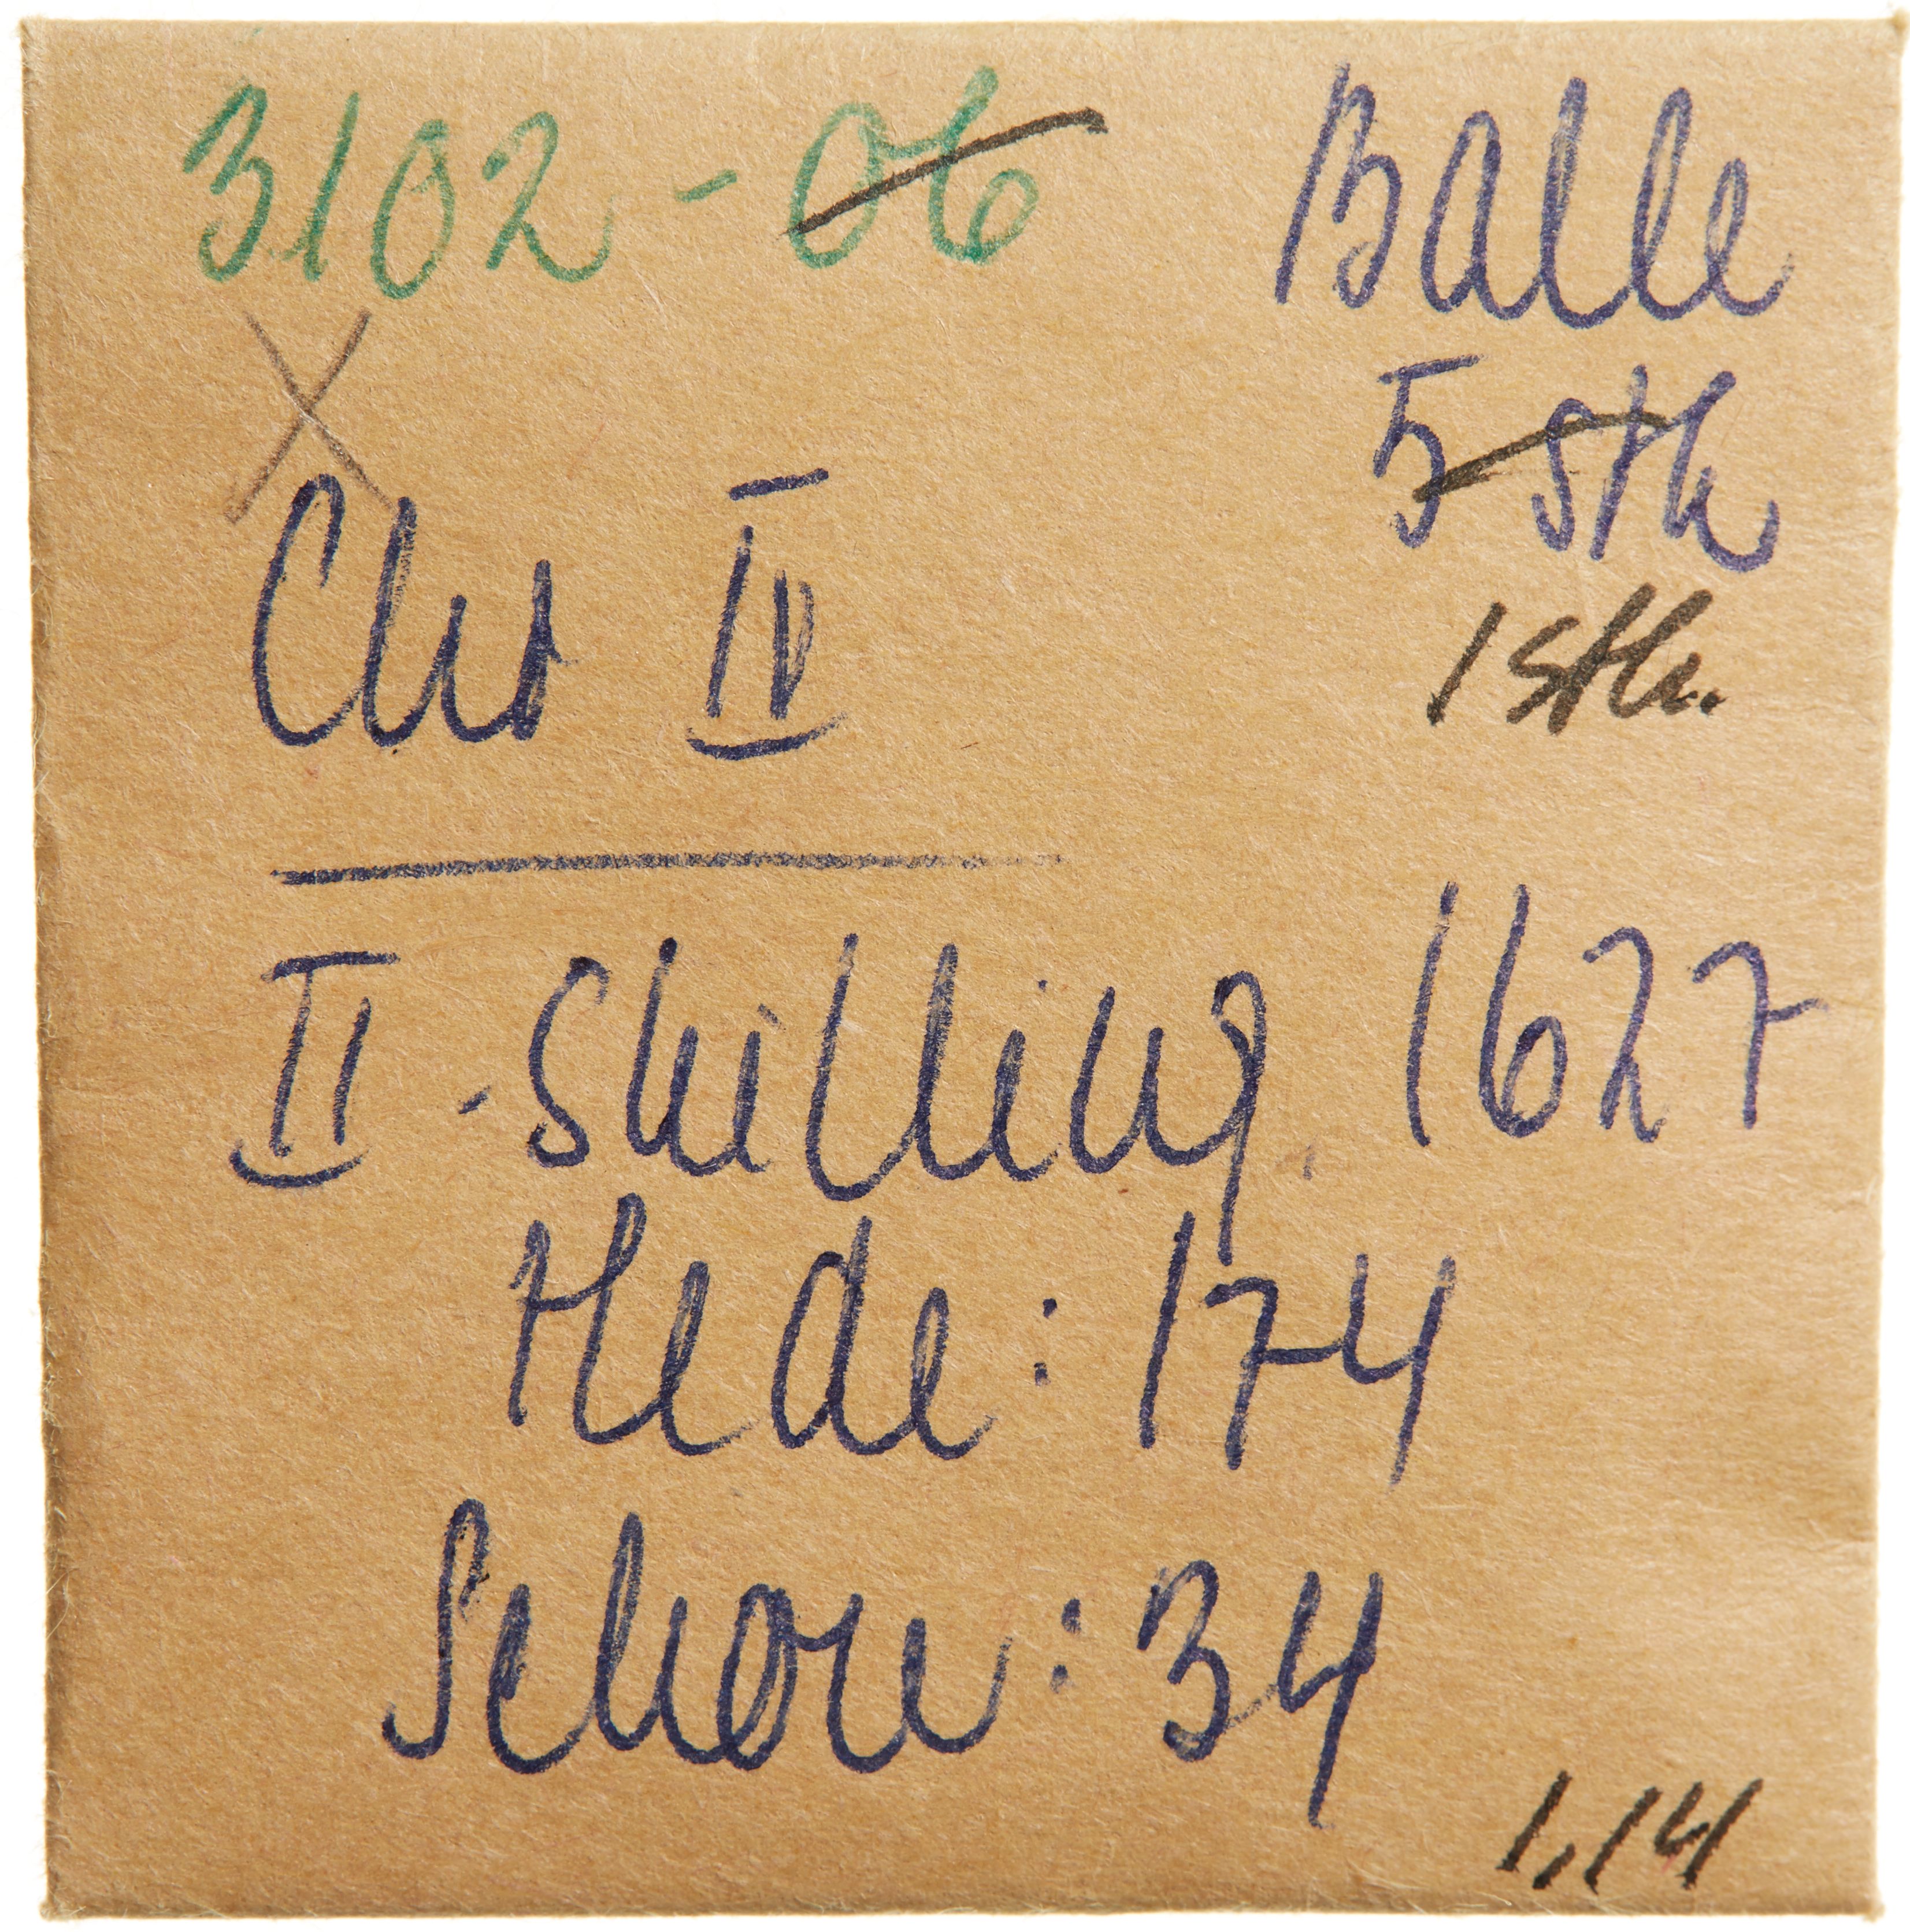 3102 - 06 Balle
5 stk
X
Chr IV
1 stk.
II - Skilling 1627
Hede: 174
Schou: 34
1,14